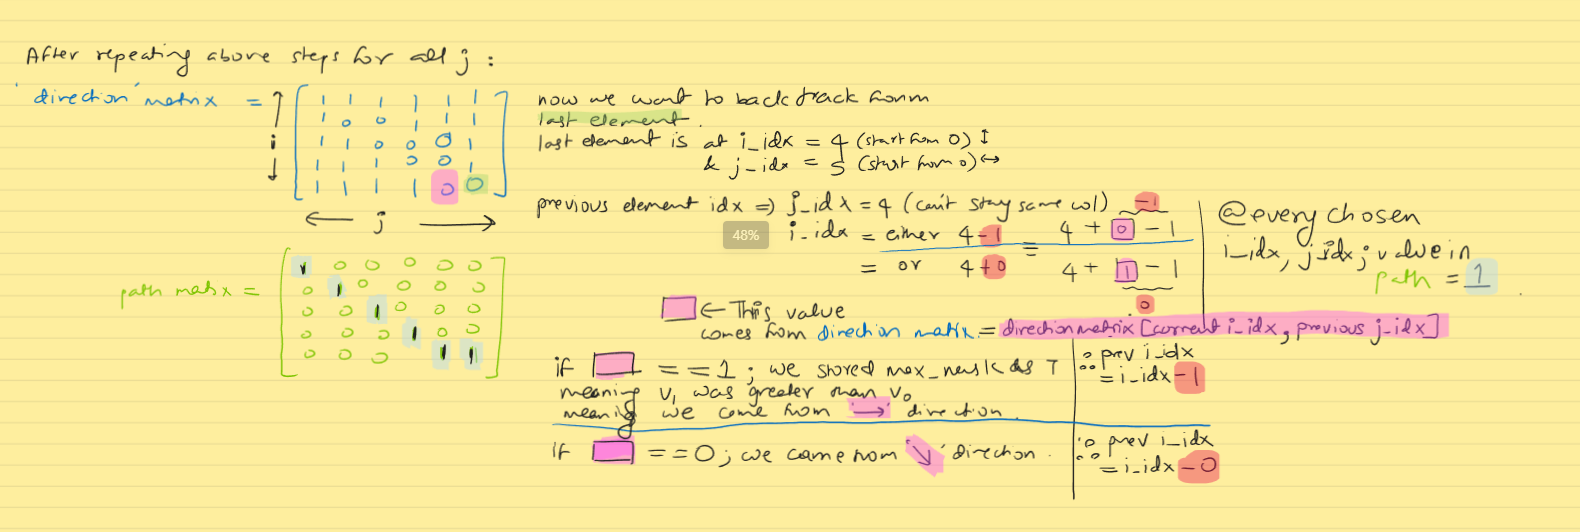 After repeating above steps for all j :
'direction' matrix =
1 1 1 1 1 1
1 0 0 1 1 1
1 1 0 0 0 1
1 1 1 0 0 1
1 1 1 1 0 0
i
j
path matrix =
1 0 0 0 0 0
0 1 0 0 0 0
0 0 1 0 0 0
0 0 0 1 0 0
0 0 0 1 1
now we want to backtrack from
last element.
last element is at i_idx = 4 (start from 0) ↕
& j_idx = 5 (start from 0) ↔
previous element idx => j_idx = 4 (can't stay same col)
i_idx = either 4-1 = 4 + 0 - 1
-1
= or 4+0 4 + 1 - 1
0
48%
← This value
comes from direction matrix. = direction matrix [current i_idx, previous j_idx]
if == 1 ; we stored max_mask as 1
meaning v1 was greater than v0
meaning we came from → direction.
∴ prev i_idx
= i_idx -1
if == 0 ; we came from ↘ direction.
∴ prev i_idx
= i_idx - 0
@every chosen
i_idx, j_idx ; value in
path = 1